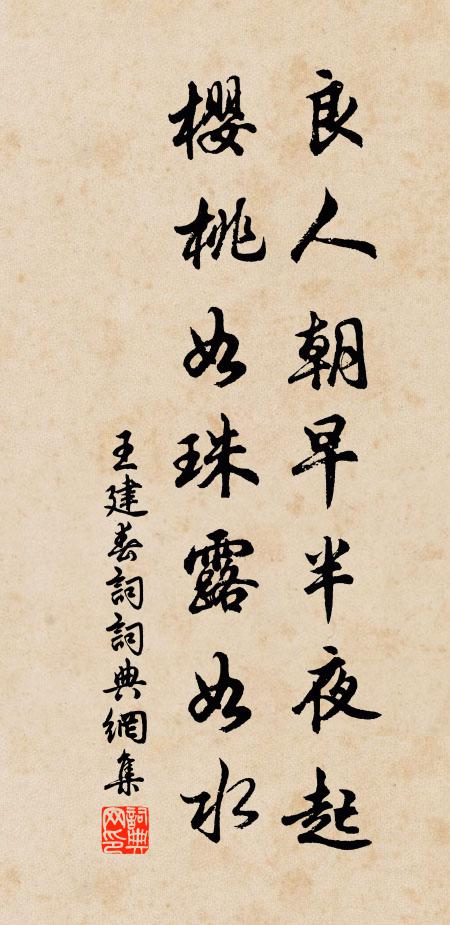 良人朝早半夜起
櫻桃如珠露如水
王建春詞詞典網集
詞典網印